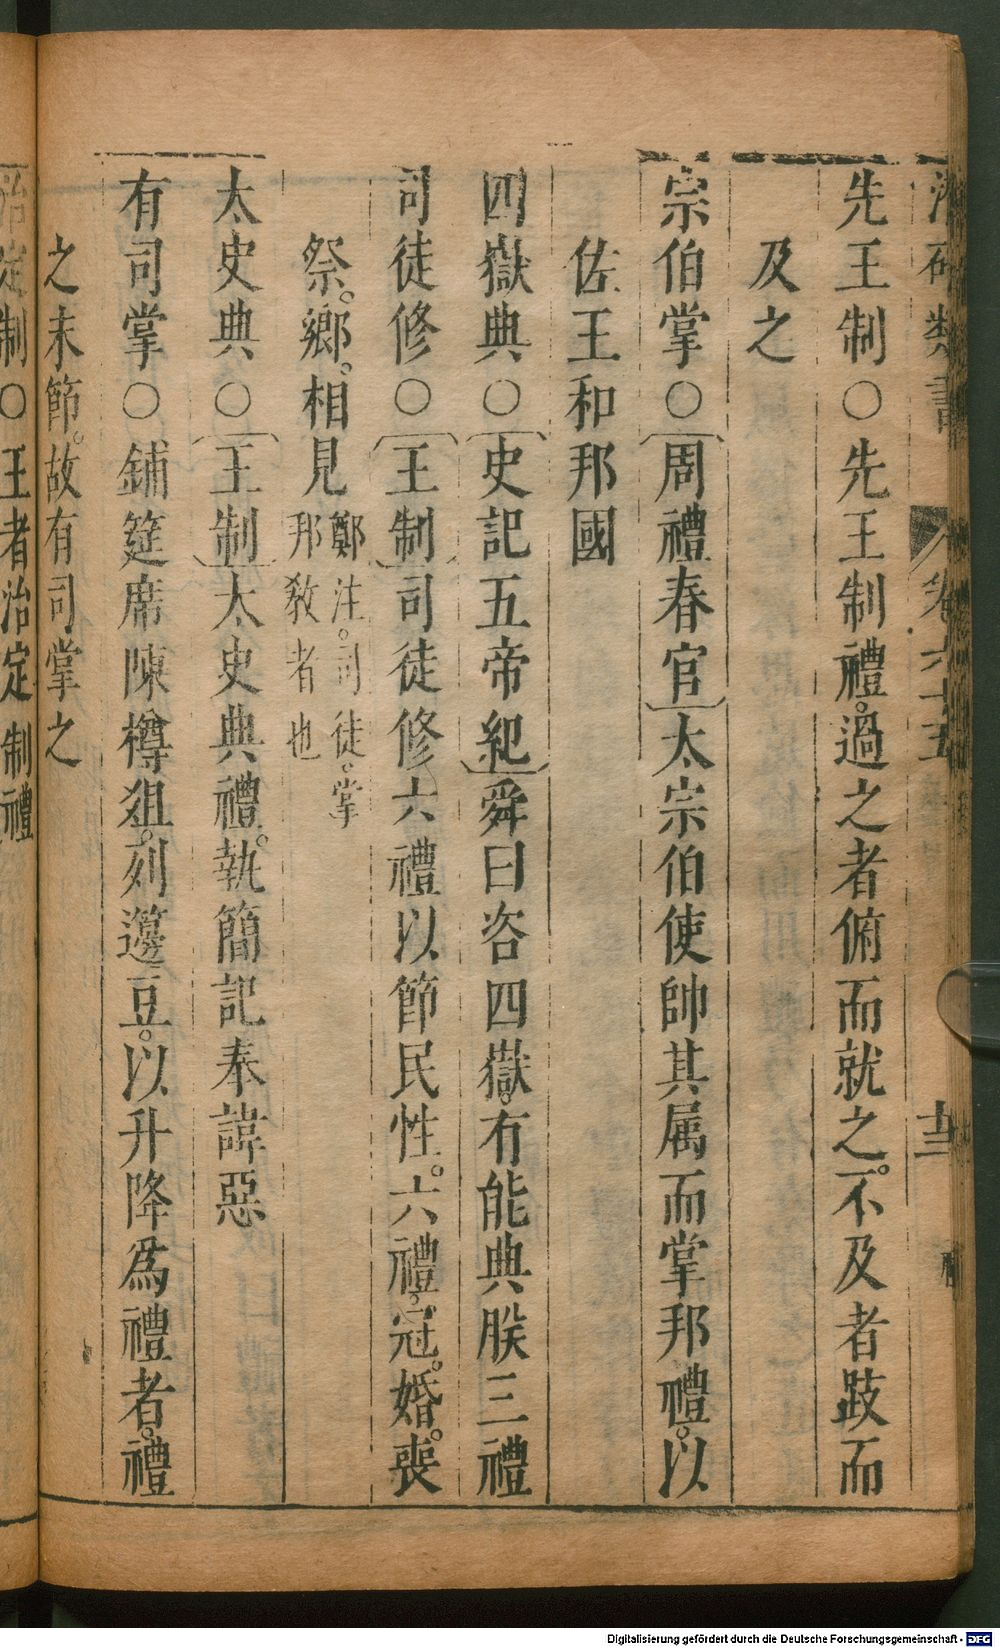 類書 卷六十五 十三
先王制○先王制禮。過之者俯而就之。不及者跂而
及之
宗伯掌○周禮春官太宗伯使帥其属而掌邦禮。以
佐王和邦國
四嶽典○史記五帝紀舜曰咨四嶽。有能典朕三禮
司徒修○王制司徒修六禮以節民性。六禮。冠。婚。喪
祭。鄉。相見鄭注。司徒。掌邦教者也
太史典○王制太史典禮。執簡記奉諱惡
有司掌○鋪筵席陳樽俎。列籩豆。以升降為禮者。禮
之末節。故有司掌之
治定制○王者治定制禮
Digitalisierung gefördert durch die Deutsche Forschungsgemeinschaft - DFG